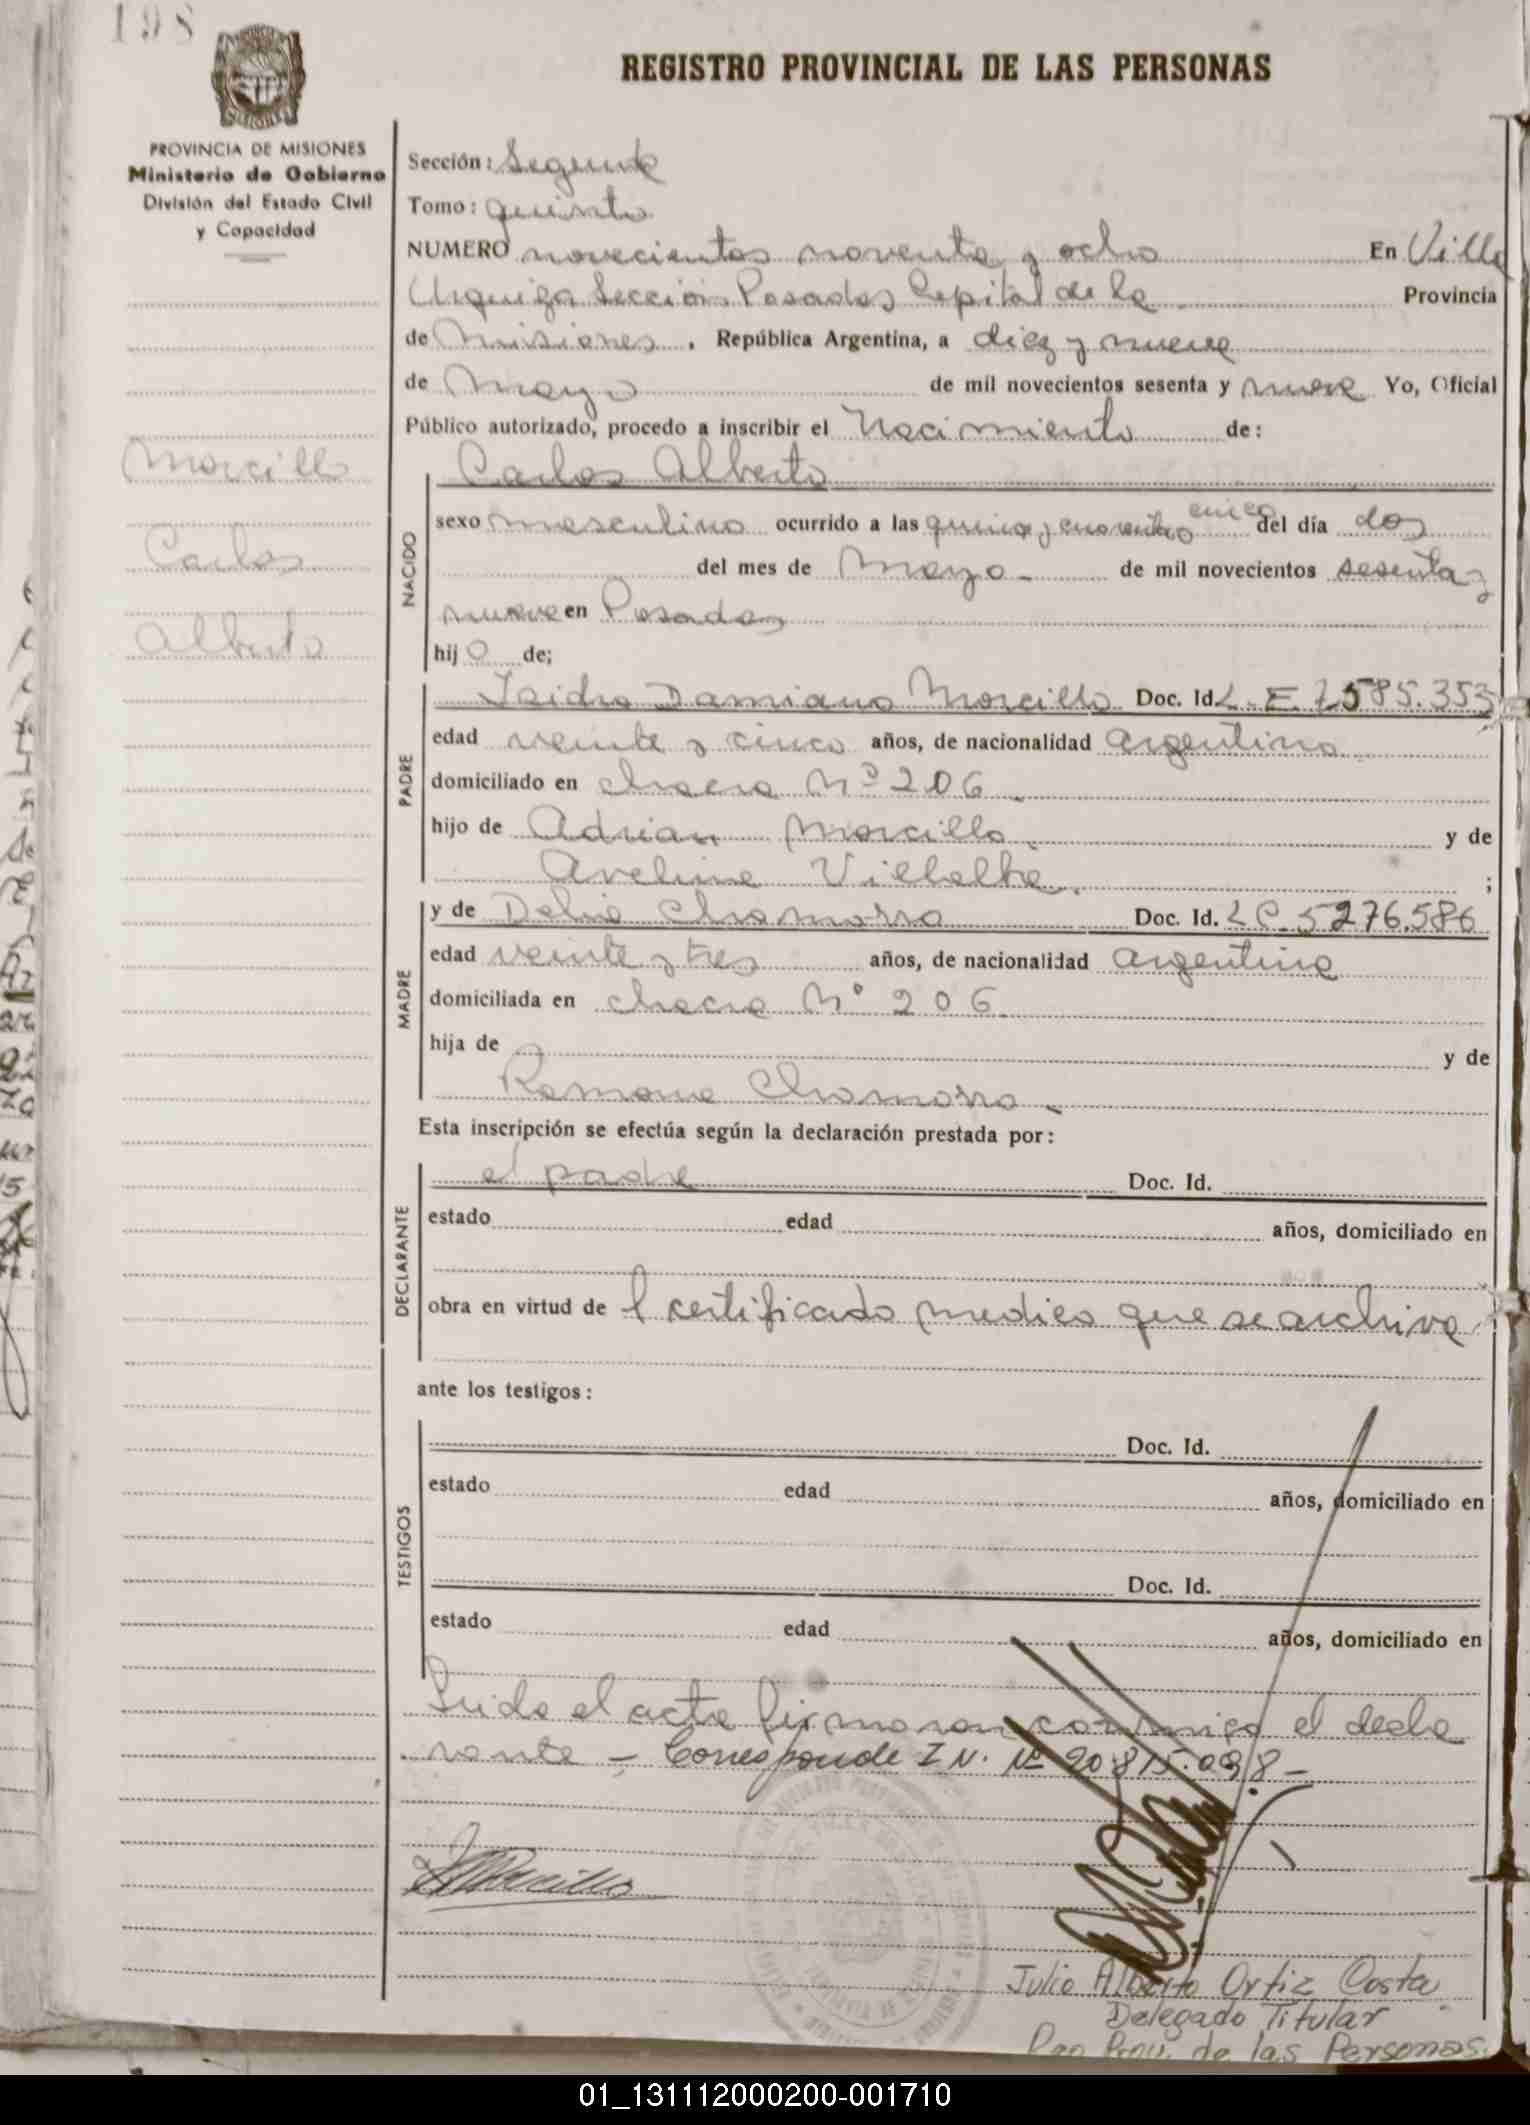 198
REGISTRO PROVINCIAL DE LAS PERSONAS
PROVINCIA DE MISIONES
Ministerio de Gobierno
División del Estado Civil
y Capacidad
Morcillo
Carlos
Alberto
Sección: Segunda
Tomo: quinto
NUMERO novecientos noventa y ocho En Villa
Urquiza Sección Posadas Capital de la Provincia
de Misiones. República Argentina, a diez y nueve
de Mayo de mil novecientos sesenta y nueve Yo, Oficial
Público autorizado, procedo a inscribir el Nacimiento de:
NACIDO
Carlos Alberto
sexo masculino ocurrido a las quince y cuarenta cinco del día dos
del mes de Mayo de mil novecientos sesenta y
nueve en Posadas
hijo de;
PADRE
Isidro Damiano Morcillo Doc. Id. L.E. 7.585.353
edad veinte y cinco años, de nacionalidad argentino
domiciliado en chacra Nº 206
hijo de Adrian Morcillo y de
Avelina Villalba ;
MADRE
y de Delia Chamorro Doc. Id. L C. 5276.586
edad veinte y tres años, de nacionalidad argentina
domiciliada en chacra Nº 206
hija de y de
Ramona Chamorro
Esta inscripción se efectúa según la declaración prestada por:
DECLARANTE
el padre Doc. Id.
estado edad años, domiciliado en
obra en virtud de l certificado medico que se archiva
ante los testigos:
TESTIGOS
Doc. Id.
estado edad años, domiciliado en
Doc. Id.
estado edad años, domiciliado en
Leida el acta firmaron conmigo el decla
rante - Corresponde I N. Nº 20.815.098-
Morcillo
Julio Alberto Ortiz Costa
Delegado Titular
Reg Prov. de las Personas.
01_131112000200-001710